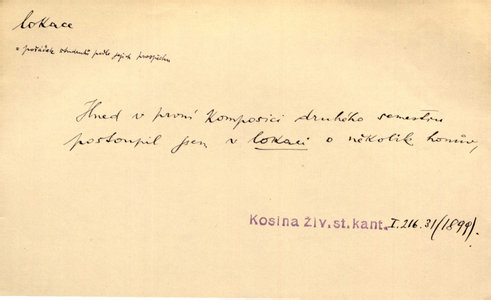 lokace
= pořádek studentů podle jejich prospěchu
Hned v první komposici druhého semestru
postoupil jsem v lokaci o několik honův,
Kosina Živ. st. kant. I. 216. 31/(1899).